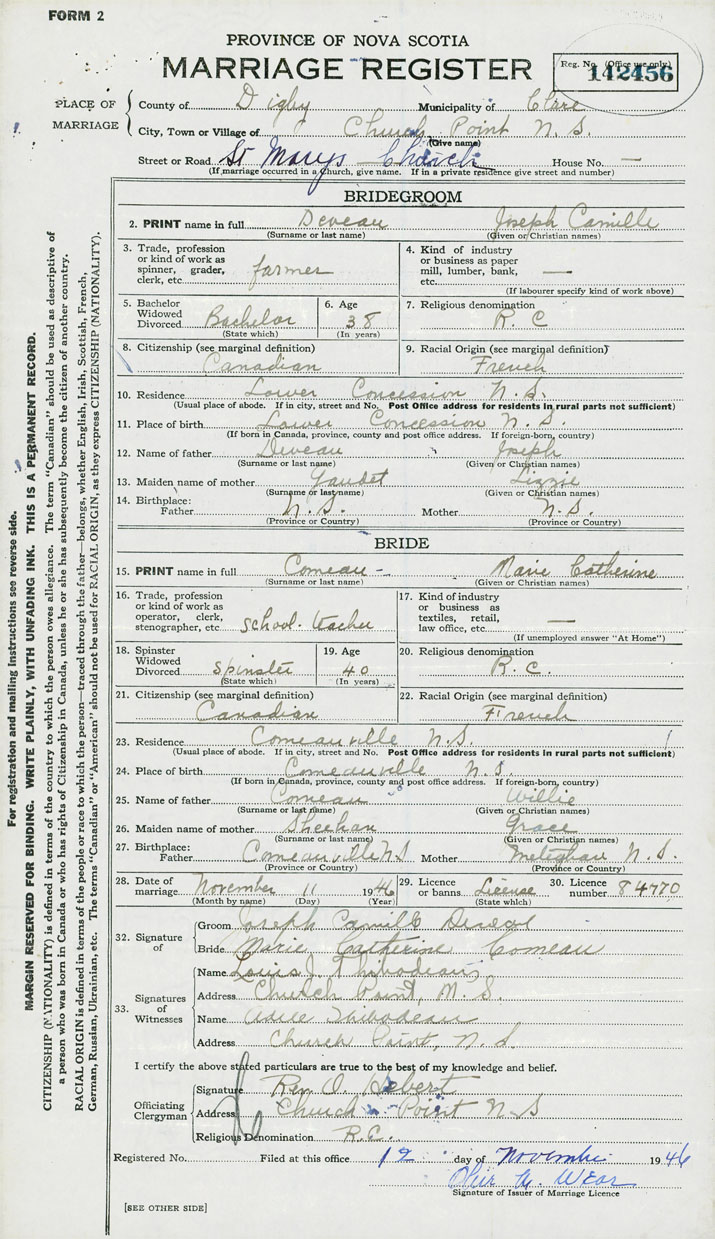 FORM 2
PROVINCE OF NOVA SCOTIA
MARRIAGE REGISTER
Reg. No. (Office use only)
142456
PLACE OF MARRIAGE
County of Digby Municipality of Clare
City, Town or Village of Church Point N. S.
(Give name)
Street or Road St Marys Church House No. —
(If marriage occurred in a church, give name. If in a private residence give street and number)
BRIDEGROOM
2. PRINT name in full Deveau Joseph Camille
(Surname or last name) (Given or Christian names)
3. Trade, profession or kind of work as spinner, grader, clerk, etc. farmer
4. Kind of industry or business as paper mill, lumber, bank, etc. —
(If labourer specify kind of work above)
5. Bachelor Widowed Divorced Bachelor
(State which)
6. Age 38
(In years)
7. Religious denomination R. C
8. Citizenship (see marginal definition) Canadian
9. Racial Origin (see marginal definition) French
10. Residence Lower Concession N. S.
(Usual place of abode. If in city, street and No. Post Office address for residents in rural parts not sufficient)
11. Place of birth Lower Concession N. S.
(If born in Canada, province, county and post office address. If foreign-born, country)
12. Name of father Deveau Joseph
(Surname or last name) (Given or Christian names)
13. Maiden name of mother Gaudet Lizzie
(Surname or last name) (Given or Christian names)
14. Birthplace: Father N. S. Mother N. S.
(Province or Country) (Province or Country)
BRIDE
15. PRINT name in full Comeau - Marie Catherine
(Surname or last name) (Given or Christian names)
16. Trade, profession or kind of work as operator, clerk, stenographer, etc. school-teacher
17. Kind of industry or business as textiles, retail, law office, etc. —
(If unemployed answer "At Home")
18. Spinster Widowed Divorced Spinster
(State which)
19. Age 40
(In years)
20. Religious denomination R. C.
21. Citizenship (see marginal definition) Canadian
22. Racial Origin (see marginal definition) French
23. Residence Comeauville N. S.
(Usual place of abode. If in city, street and No. Post Office address for residents in rural parts not sufficient)
24. Place of birth Comeauville N. S.
(If born in Canada, province, county and post office address. If foreign-born, country)
25. Name of father Comeau Willie
(Surname or last name) (Given or Christian names)
26. Maiden name of mother Sheehan Grace
(Surname or last name) (Given or Christian names)
27. Birthplace: Father Comeauville N S Mother Meteghan N. S.
(Province or Country) (Province or Country)
28. Date of marriage November 11 1946
(Month by name) (Day) (Year)
29. Licence or banns License
(State which)
30. Licence number 84770
32. Signature of
Groom Joseph Camille
Bride Marie Catherine Comeau
33. Signatures of Witnesses
Name Louis J. Thibodeau
Address Church Point, N. S.
Name Thibodeau
Address Church Point, N. S
I certify the above stated particulars are true to the best of my knowledge and belief.
Officiating Clergyman
Signature Rev O. Hebert
Address Church Point N S
Religious Denomination R.C.
Registered No. Filed at this office 12 day of November 1946
Signature of Issuer of Marriage Licence
[SEE OTHER SIDE]
For registration and mailing instructions see reverse side.
MARGIN RESERVED FOR BINDING. WRITE PLAINLY, WITH UNFADING INK. THIS IS A PERMANENT RECORD.
CITIZENSHIP (NATIONALITY) is defined in terms of the country to which the person owes allegiance. The term "Canadian" should be used as descriptive of
a person who was born in Canada or who has rights of Citizenship in Canada, unless he or she has subsequently become the citizen of another country.
RACIAL ORIGIN is defined in terms of the people or race to which the person—traced through the father—belongs, whether English, Irish, Scottish, French,
German, Russian, Ukrainian, etc. The terms "Canadian" or "American" should not be used for RACIAL ORIGIN, as they express CITIZENSHIP (NATIONALITY).